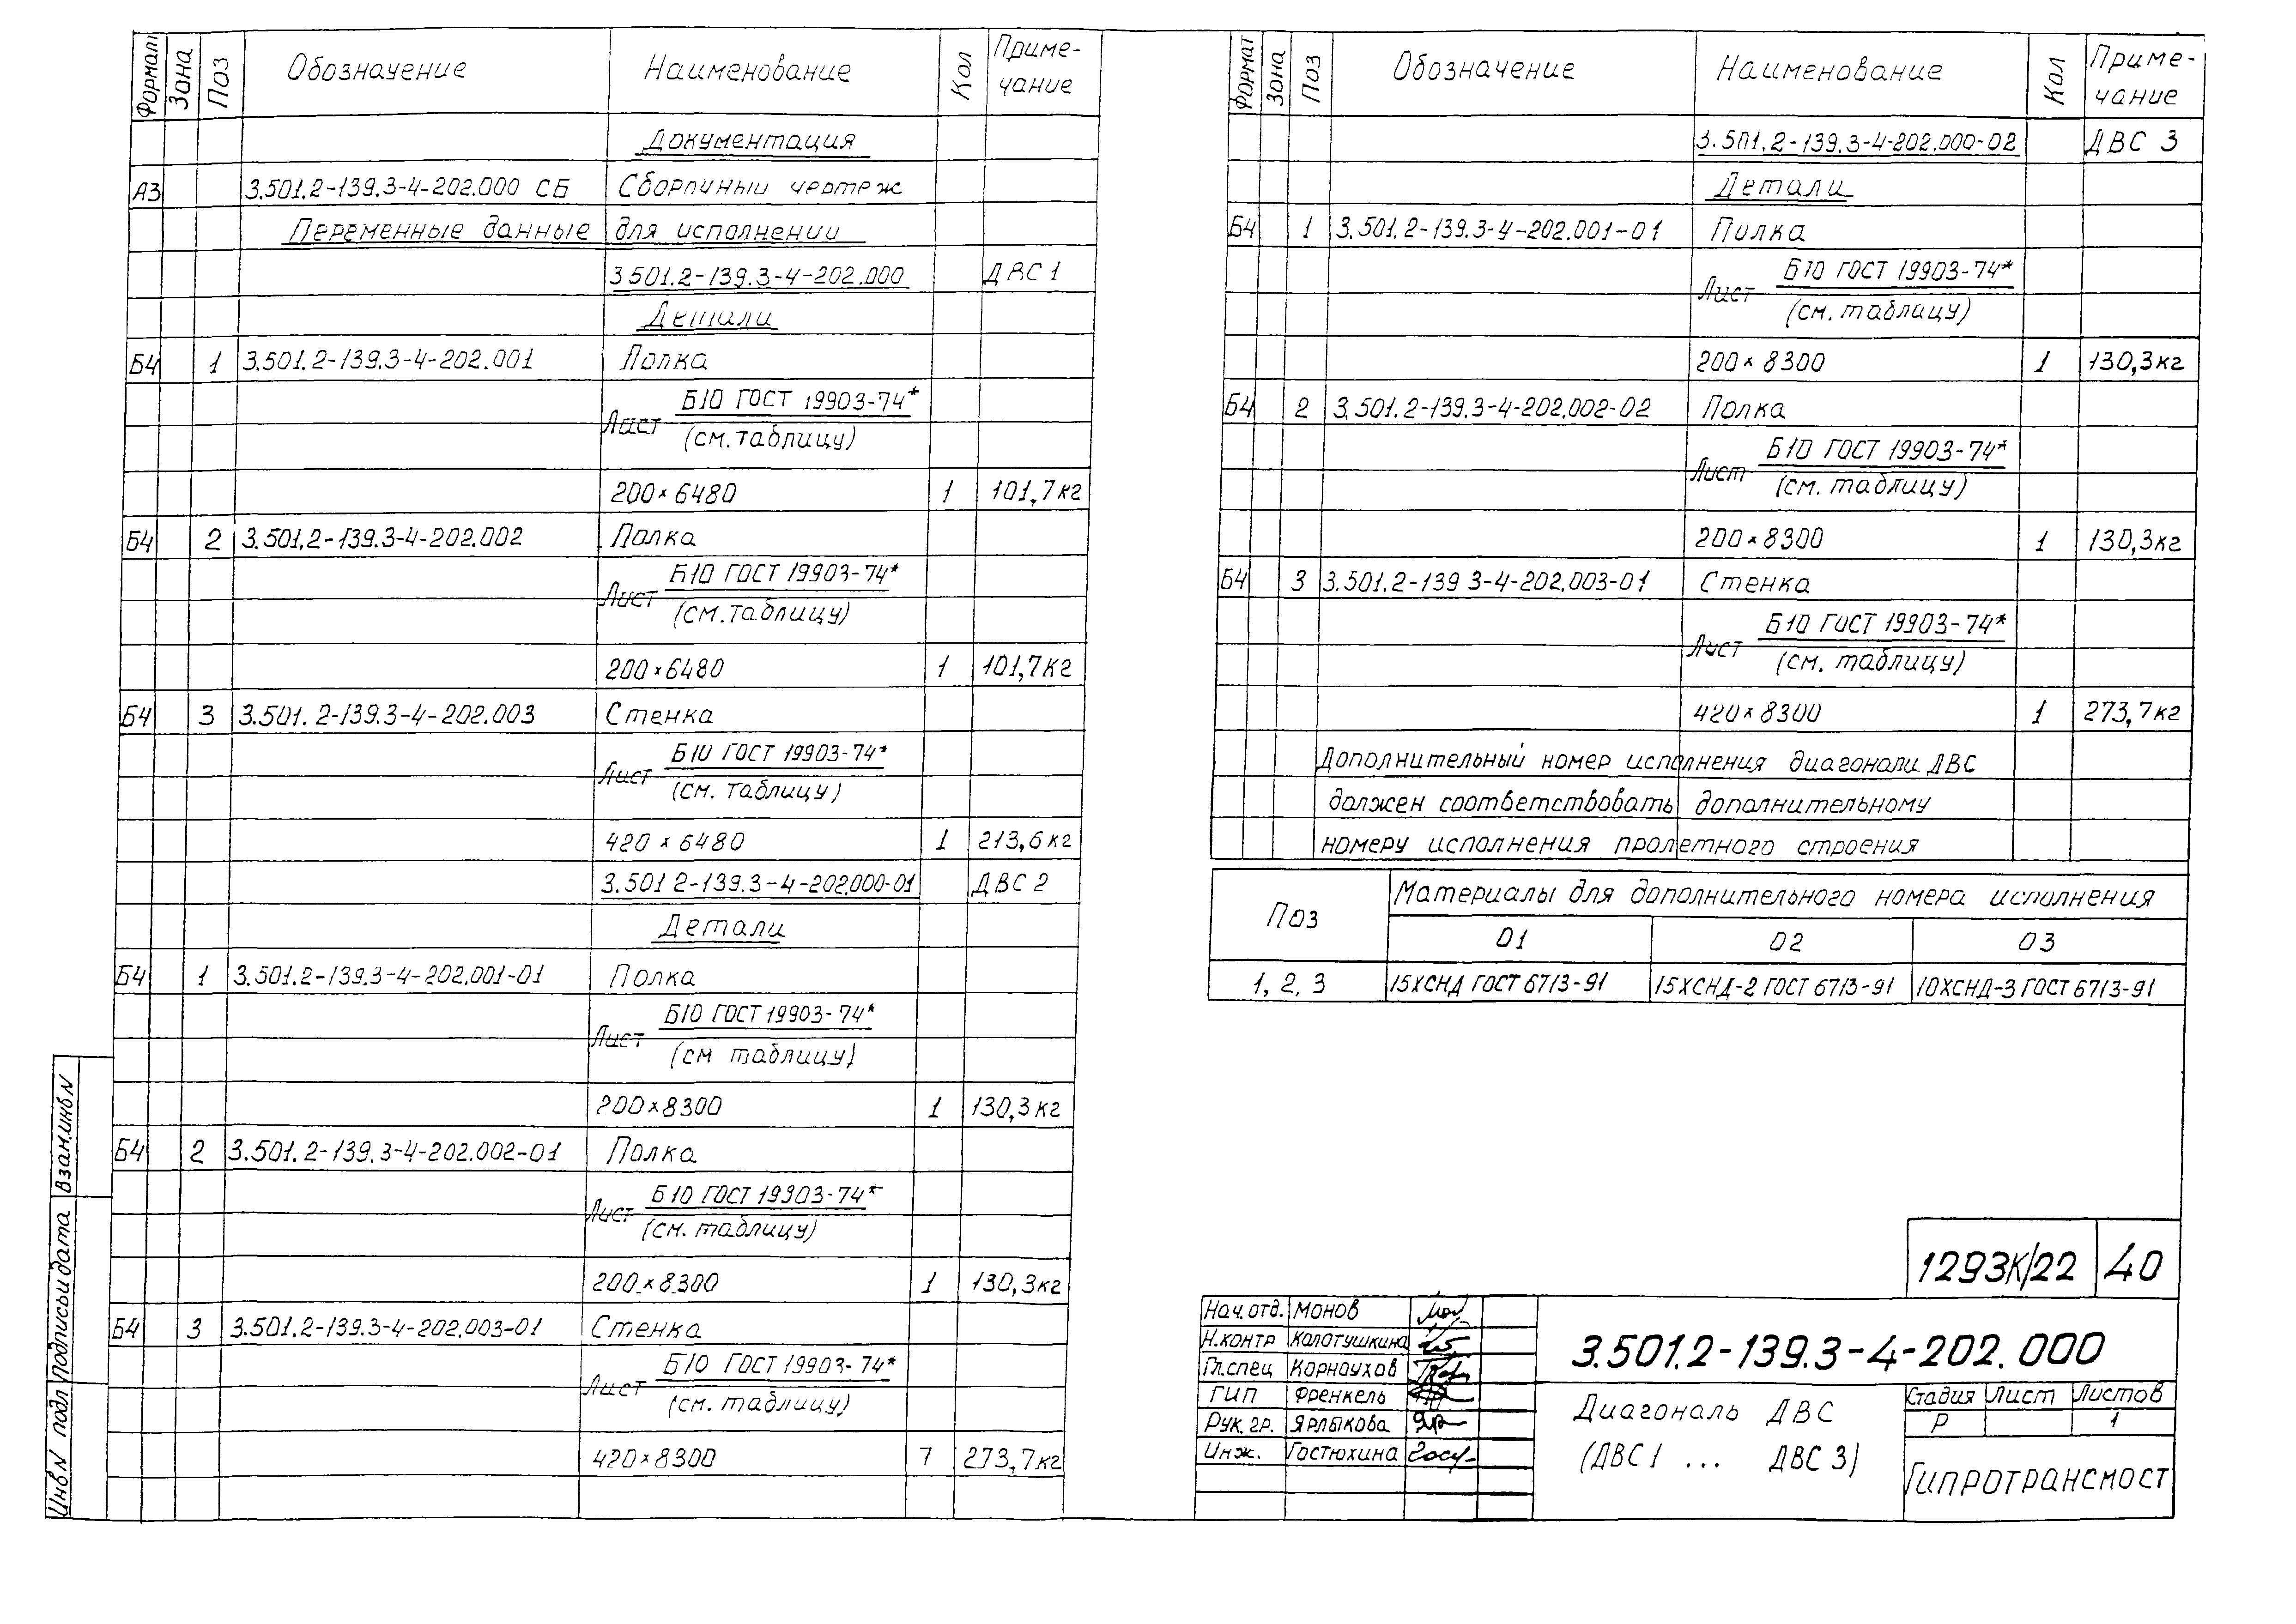 Формат Зона Поз Обозначение Наименование Кол Приме-
чание
Документация
А3 3.501.2-139.3-4-202.000 СБ Сборочный чертеж
Переменные данные для исполнении
3.501.2-139.3-4-202.000 ДВС 1
Детали
Б4 1 3.501.2-139.3-4-202.001 Полка
Лист Б10 ГОСТ 19903-74*
(см. таблицу)
200×6480 1 101,7кг
Б4 2 3.501.2-139.3-4-202.002 Полка
Лист Б10 ГОСТ 19903-74*
(см. таблицу)
200×6480 1 101,7кг
Б4 3 3.501.2-139.3-4-202.003 Стенка
Лист Б10 ГОСТ 19903-74*
(см. таблицу)
420×6480 1 213,6кг
3.501 2-139.3-4-202.000-01 ДВС 2
Детали
Б4 1 3.501.2-139.3-4-202.001-01 Полка
Лист Б10 ГОСТ 19903-74*
(см таблицу)
200×8300 1 130,3кг
Б4 2 3.501.2-139.3-4-202.002-01 Полка
Лист Б10 ГОСТ 19903-74*
(см. таблицу)
200×8300 1 130,3кг
Б4 3 3.501.2-139.3-4-202.003-01 Стенка
Лист Б10 ГОСТ 19903-74*
(см. таблицу)
420×8300 1 273,7кг
Инв N подл Подпись и дата Взам.инв N
Формат Зона Поз Обозначение Наименование Кол Приме-
чание
3.501.2-139.3-4-202.000-02 ДВС 3
Детали
Б4 1 3.501.2-139.3-4-202.001-01 Полка
Лист Б10 ГОСТ 19903-74*
(см. таблицу)
200×8300 1 130,3кг
Б4 2 3.501.2-139.3-4-202.002-02 Полка
Лист Б10 ГОСТ 19903-74*
(см. таблицу)
200×8300 1 130,3кг
Б4 3 3.501.2-139 3-4-202.003-01 Стенка
Лист Б10 ГОСТ 19903-74*
(см. таблицу)
420×8300 1 273,7кг
Дополнительный номер исполнения диагонали ДВС
должен соответствовать дополнительному
номеру исполнения пролетного строения
Поз Материалы для дополнительного номера исполнения
01 02 03
1, 2, 3 15ХСНД ГОСТ 6713-91 15ХСНД-2 ГОСТ 6713-91 10ХСНД-3 ГОСТ 6713-91
1293К/22 40
Нач. отд. Монов
Н.контр Колотушкина
Гл.спец Корноухов
ГИП Френкель
Рук. гр. Ярлыкова
Инж. Гостюхина
3.501.2-139.3-4-202.000
Диагональ ДВС
(ДВС 1 ... ДВС 3)
Стадия Лист Листов
Р 1
Гипротрансмост